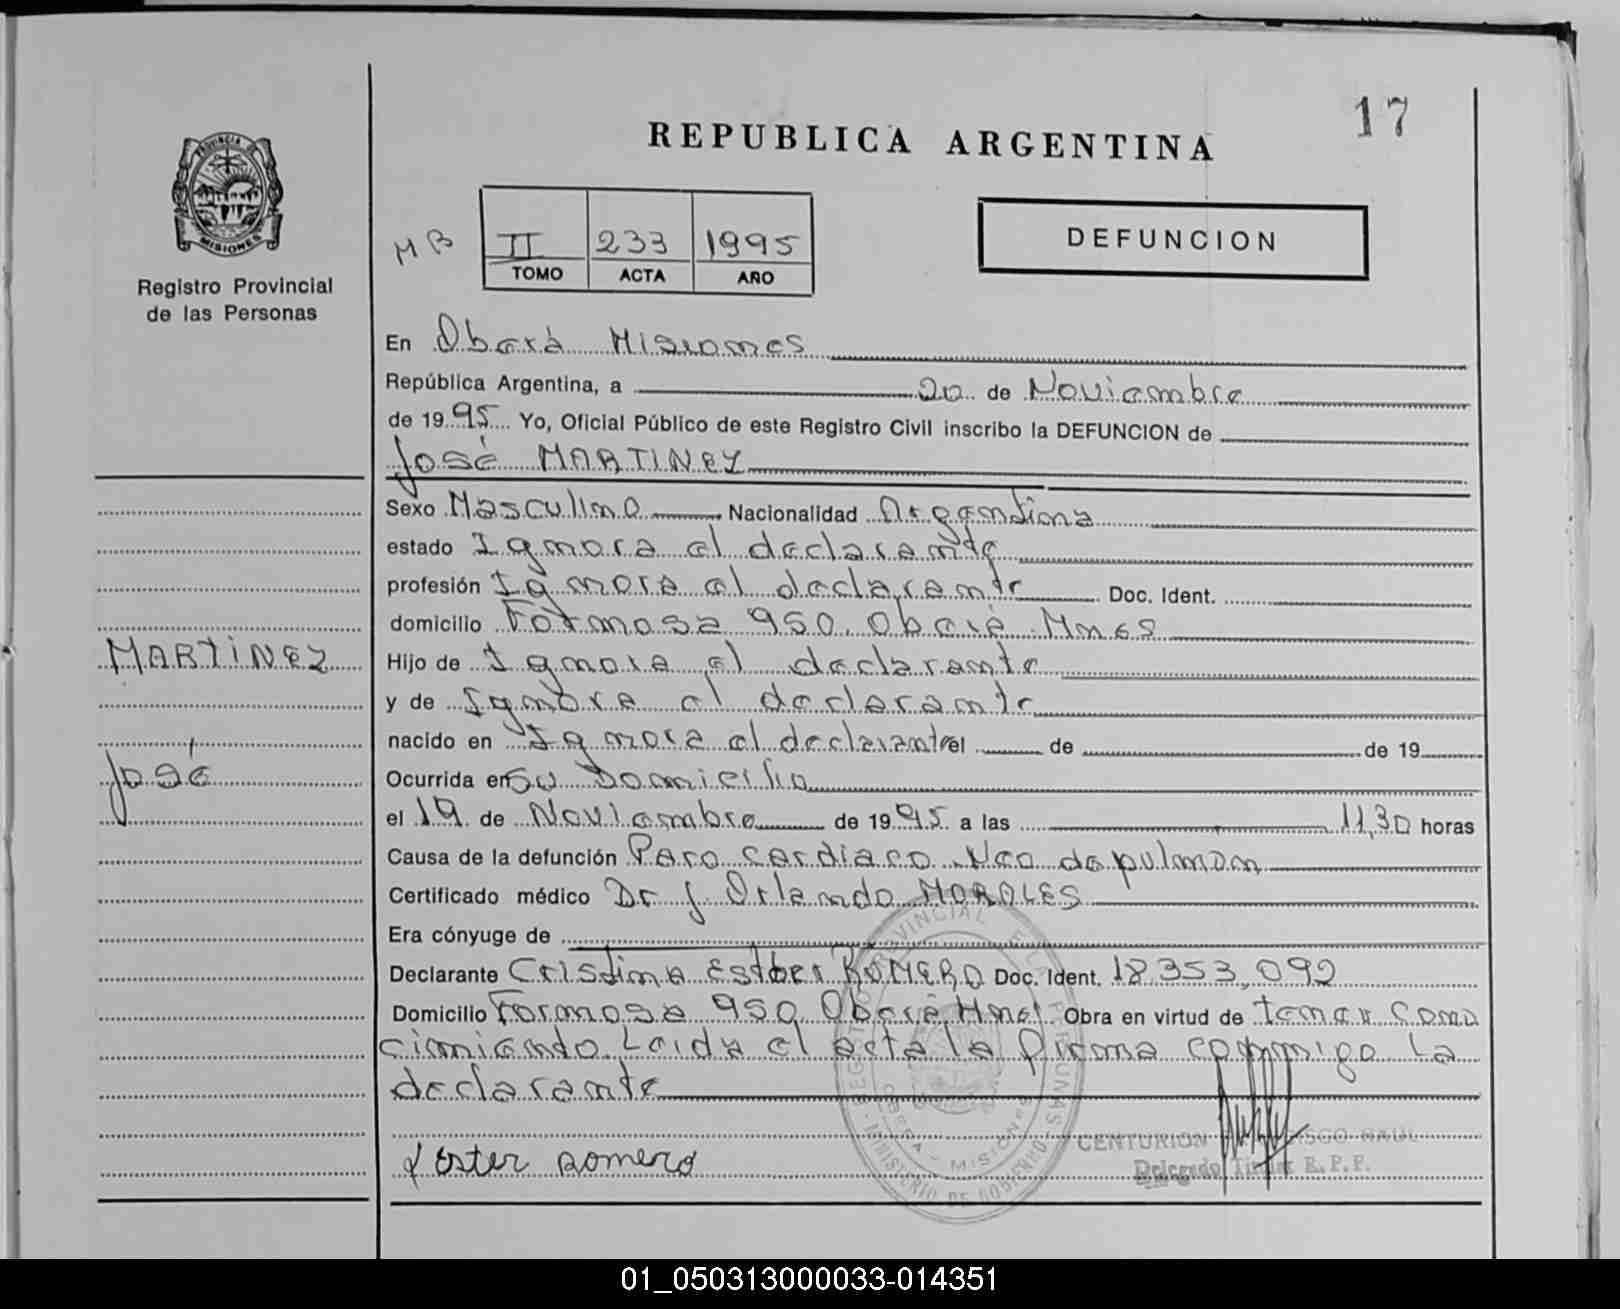 17
REPUBLICA ARGENTINA
PROVINCIA DE
MISIONES
Registro Provincial
de las Personas
MB
II 233 1995
TOMO ACTA AÑO
DEFUNCION
En Oberá Misiones
República Argentina, a 20 de Noviembre
de 1995 Yo, Oficial Público de este Registro Civil inscribo la DEFUNCION de
José MARTINEZ
Sexo Masculino Nacionalidad Argentina
estado Ignora el declarante
profesión Ignora el declarante Doc. Ident.
domicilio Formosa 950 Oberá Mnes
MARTINEZ
Hijo de Ignora el declarante
y de Ignora el declarante
nacido en Ignora el declarante el de de 19
José
Ocurrida en Su Domicilio
el 19 de Noviembre de 1995 a las 11,30 horas
Causa de la defunción Paro cardiaco Neo de pulmon
Certificado médico Dr J. Orlando MORALES
Era cónyuge de
Declarante Cristina Esther ROMERO Doc. Ident. 18.353.092
Domicilio Formosa 950 Oberá Mnes Obra en virtud de tener cono
cimiento Leida el acta la firma conmigo La
declarante
Ester Romero
REGISTRO PROVINCIAL DE LAS PERSONAS
OBERA - MISIONES
MINISTERIO DE GOBIERNO
CENTURION RAUL
Delegado Titular R.P.P.
01_050313000033-014351